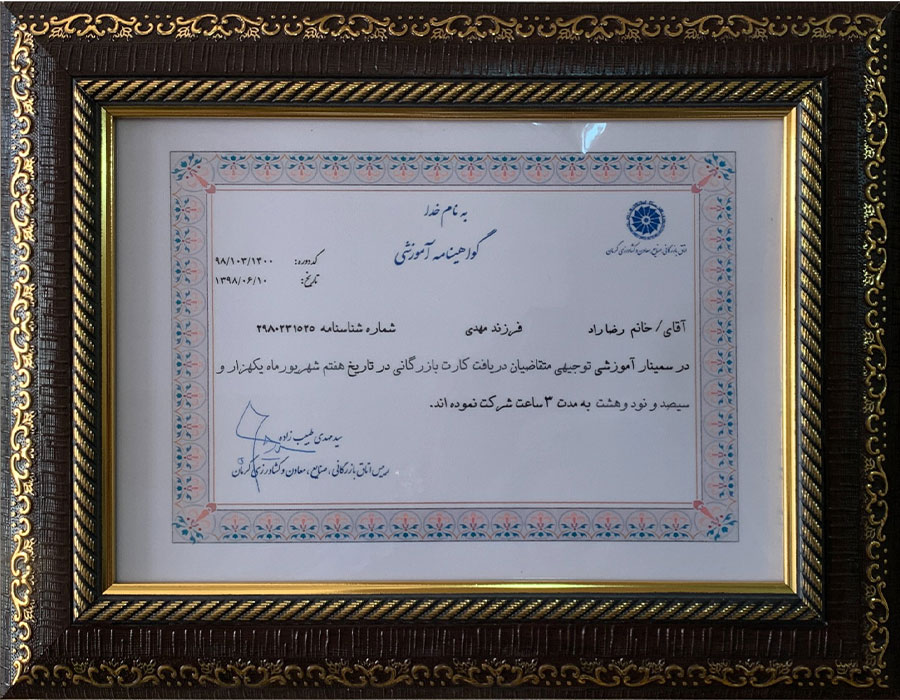 به نام خدا
گواهینامه آموزشی
اتاق بازرگانی، صنایع، معادن و کشاورزی کرمان
کد دوره: ۹۸/۱۰۳/۱۴۰۰
تاریخ: ۱۳۹۸/۰۶/۱۰
آقای/ خانم رضا راد فرزند مهدی شماره شناسنامه ۲۹۸۰۲۳۱۵۲۵
در سمینار آموزشی توجیهی متقاضیان دریافت کارت بازرگانی در تاریخ هفتم شهریور ماه یکهزار و
سیصد و نود و هشت به مدت ۳ ساعت شرکت نموده اند.
سید مهدی طبیب زاده
رییس اتاق بازرگانی، صنایع، معادن و کشاورزی کرمان